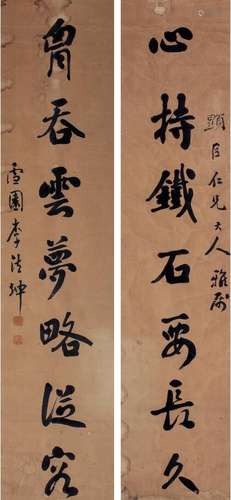 心持鐵石要長久
顯臣仁兄大人雅屬
胷吞雲夢略從容
雪園李法坤